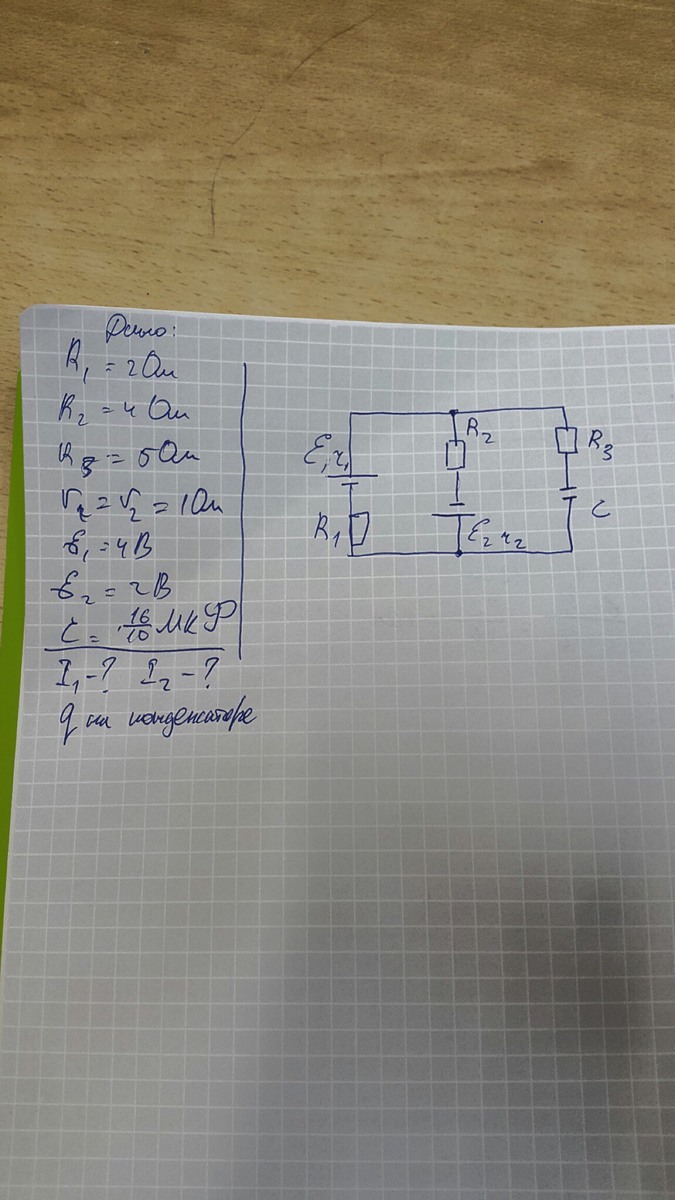 Дано:
R₁ = 2 Ом
R₂ = 4 Ом
R₃ = 5 Ом
r₁ = r₂ = 1 Ом
ℰ₁ = 4 В
ℰ₂ = 2 В
C = 16/10 мкФ
I₁ - ? I₂ - ?
q на конденсаторе
ℰ₁ r₁
R₁
R₂
ℰ₂ r₂
R₃
C